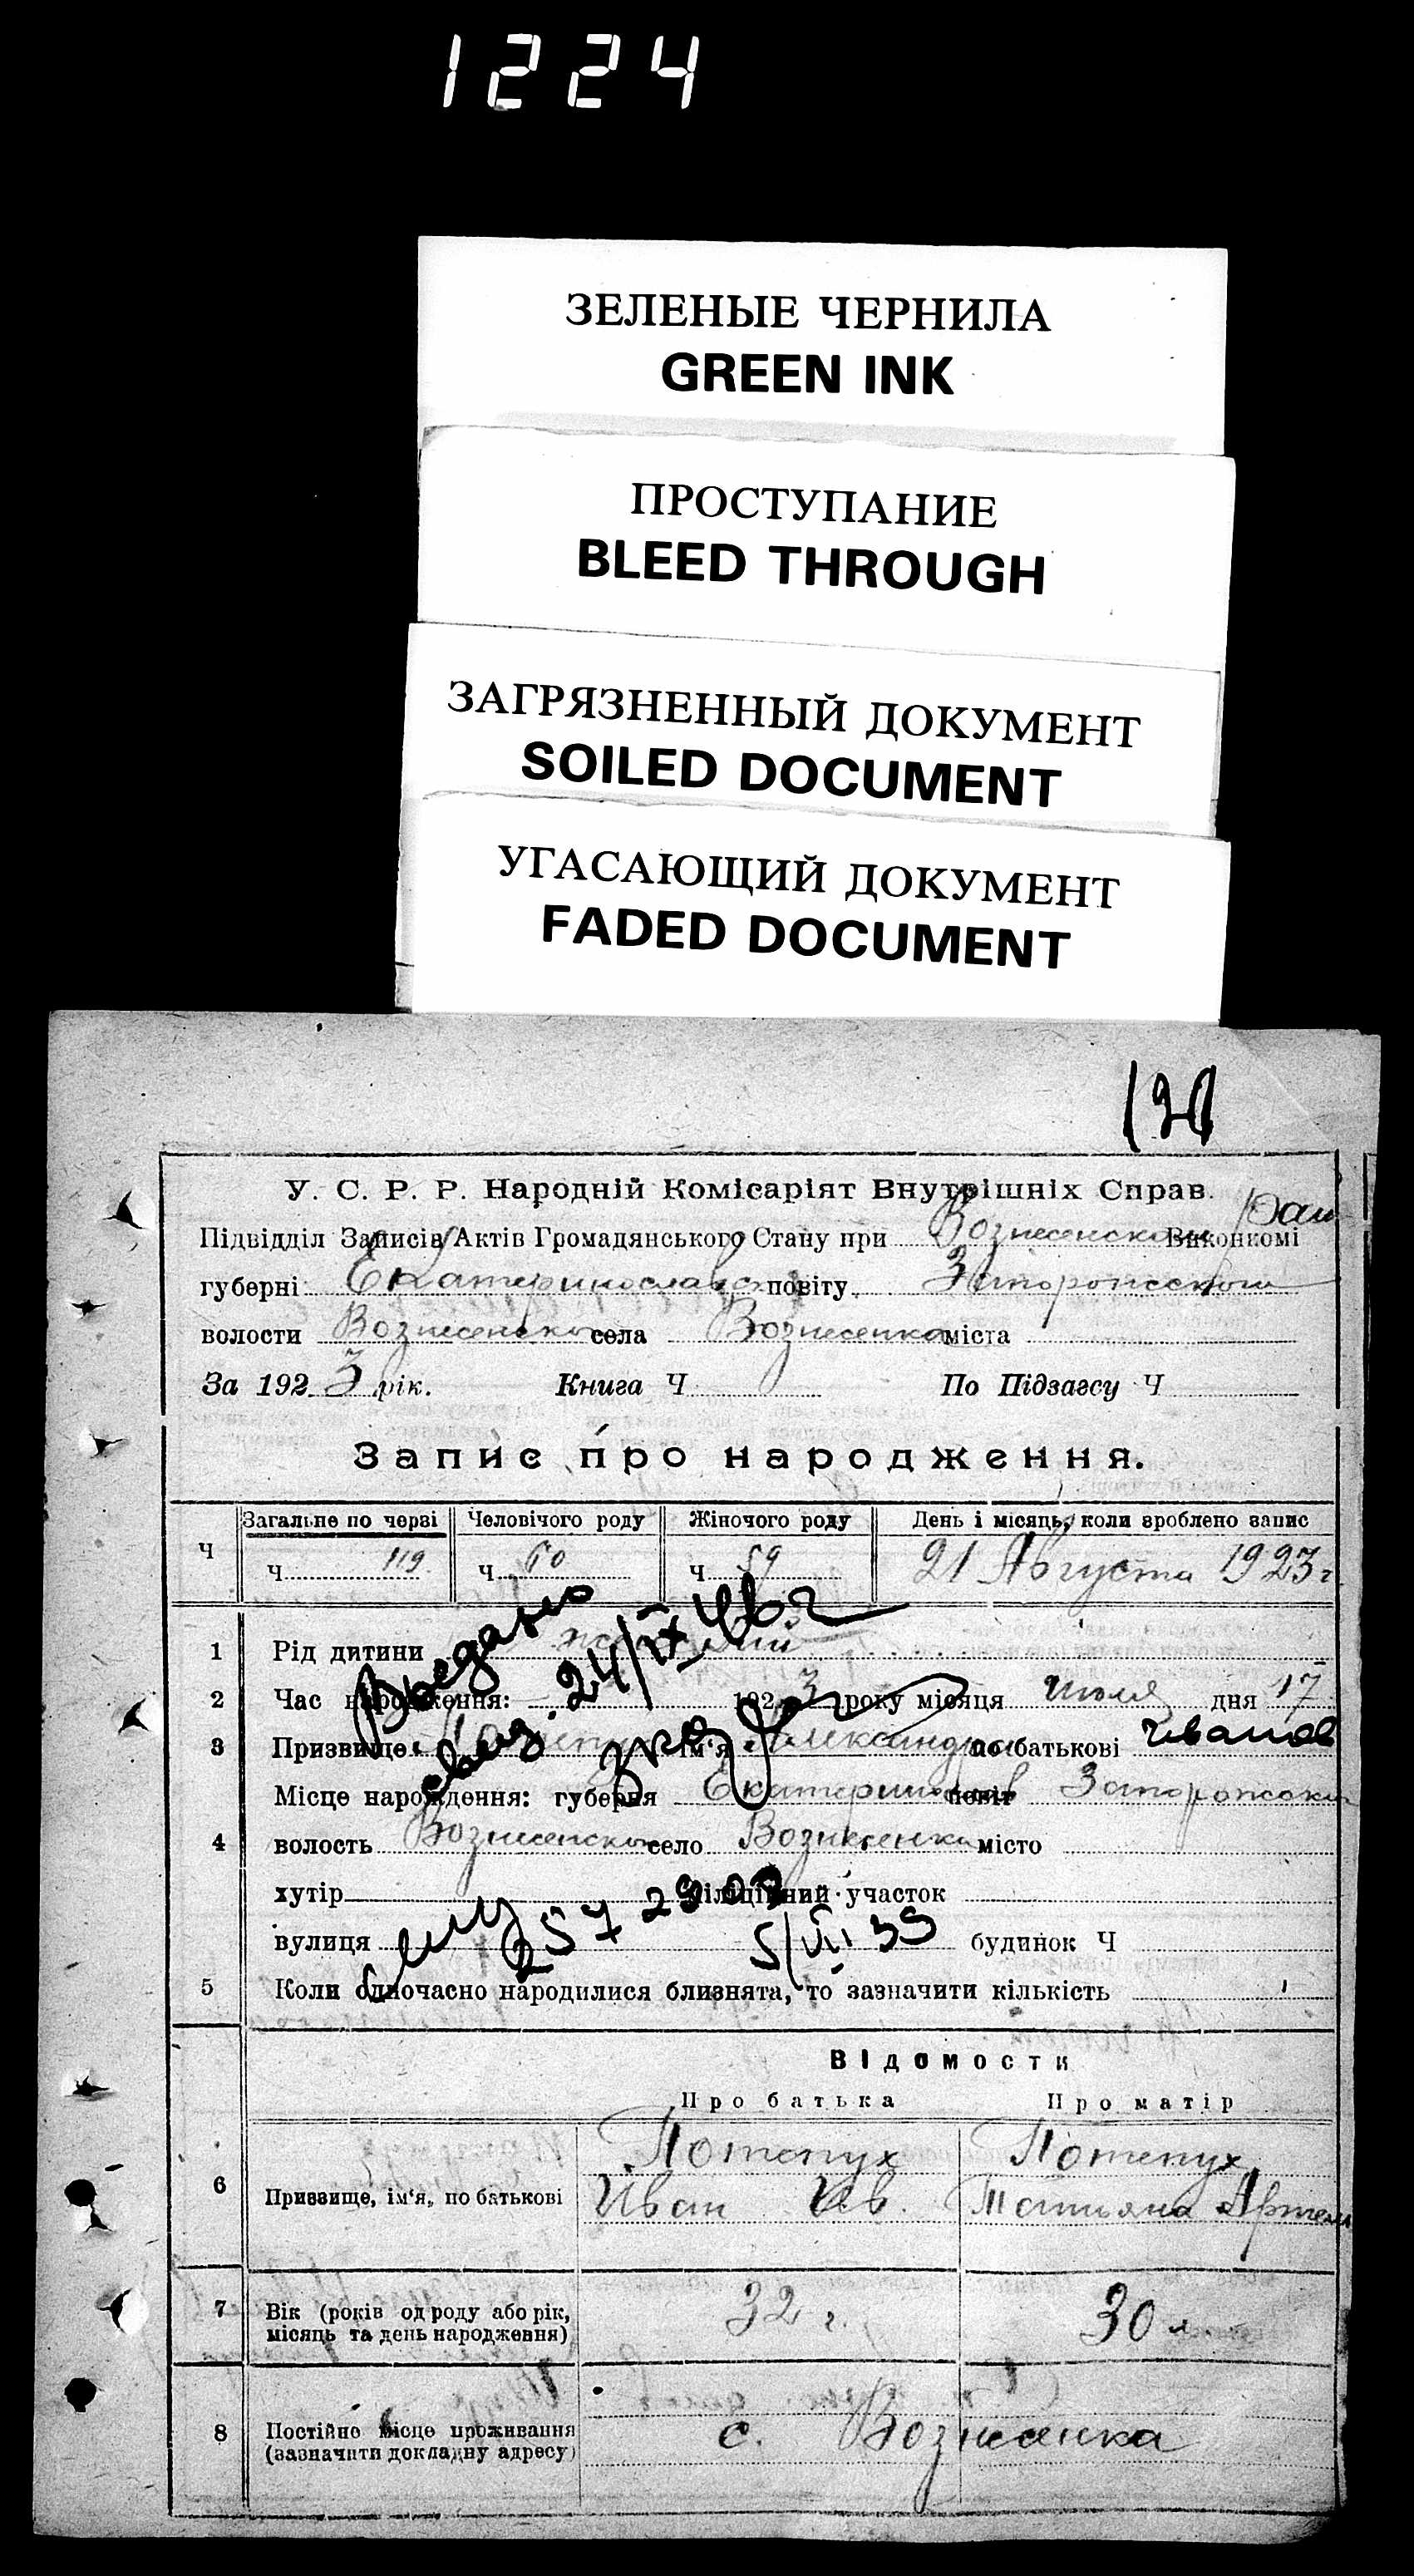 1224
ЗЕЛЕНЫЕ ЧЕРНИЛА
GREEN INK
ПРОСТУПАНИЕ
BLEED THROUGH
ЗАГРЯЗНЕННЫЙ ДОКУМЕНТ
SOILED DOCUMENT
УГАСАЮЩИЙ ДОКУМЕНТ
FADED DOCUMENT
У. С. Р. Р. Народній Комісаріят Внутрішніх Справ.
Підвідділ Записів Актів Громадянського Стану при Вознесенском Виконкомі
губерні Екатеринославс повіту Запорожского
волости Вознесенско села Вознесенка міста
За 192 3 рік. Книга Ч По Підзагсу Ч
Запис про народження.
Ч Загальне по черзі Человічого роду Жіночого роду День і місяць, коли зроблено запис
Ч 119 Ч 60 Ч 59 21 Августа 1923 г.
1 Рід дитини
Выдано 24/IX 46 г
2 Час народження: 192 3 року місяця июля дня 17
3 Призвище ім'я Александра по батькові Иванов
Місце народження: губерня Екатеринослав повіт Запорожски
4 волость Вознесенско село Вознесенка місто
хутір міліційний участок
вулиця будинок Ч
5/VII 39
5 Коли одночасно народилися близнята, то зазначити кількість
Відомости
Про батька Про матір
6 Призвище, ім'я, по батькові Потепух Потепух
Иван Ив. Татьяна Артем
7 Вік (років од роду або рік, 32 г. 30 л.
місяць та день народження)
8 Постійне місце проживання с. Вознесенка
(зазначити докладну адресу)